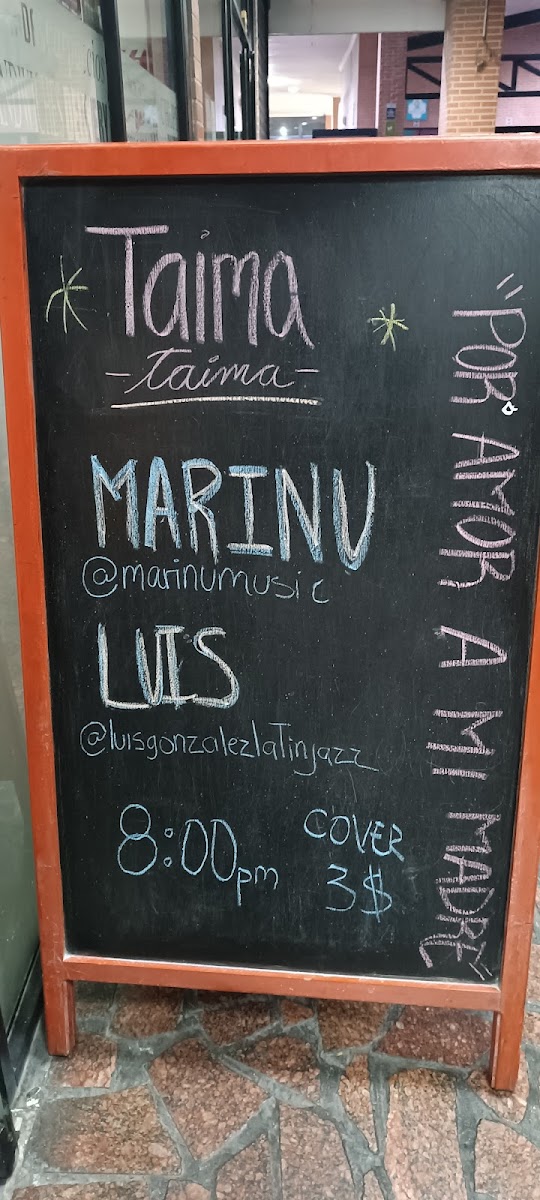 Taima
-Taima-
MARINU
@marinumusic
LUIS
@luisgonzalezlatinjazz
8:00pm
COVER
3$
"POR AMOR A MI MADRE"